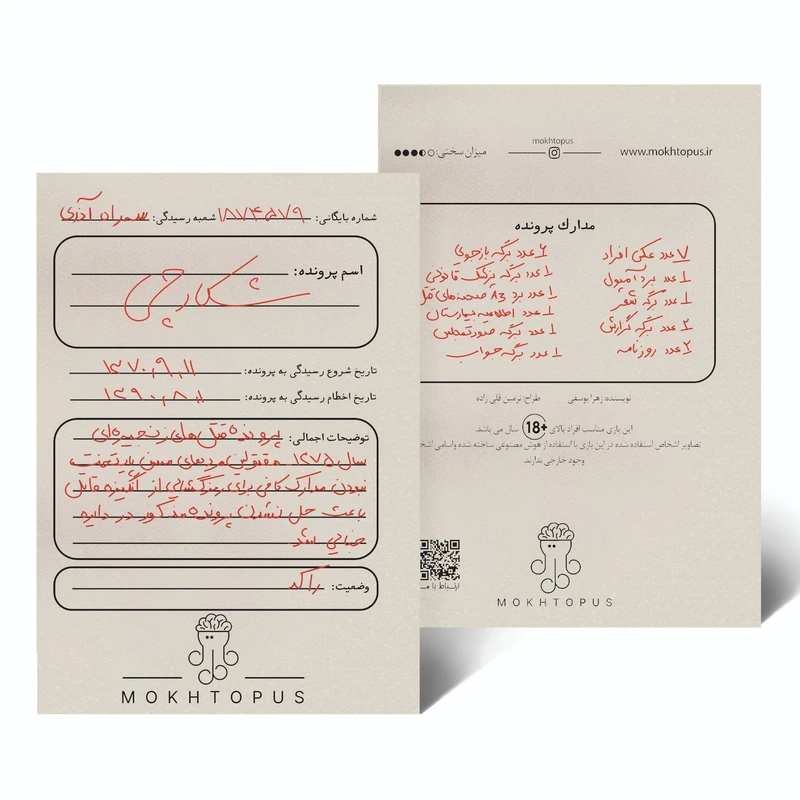 شماره بایگانی: ۱۸۷۴۵۷۹ شعبه رسیدگی:
اسم پرونده:
شکارچی
تاریخ شروع رسیدگی به پرونده: ۱۳۷۰,۹,۱۱
تاریخ اخطام رسیدگی به پرونده: ۱۳۹۰,۸,۱
توضیحات اجمالی: پرونده قتل های زنجیره‌ای
سال ۱۳۷۵
نبودن مدارک کافی برای رمزگشایی از انگیزه قاتل
باعث حل نشدن پرونده مذکور در دایره
جنایی شد
وضعیت: راکد
MOKHTOPUS
www.mokhtopus.ir
mokhtopus
میزان سختی:
مدارک پرونده
۷ عدد عکس افراد
۱ عدد برد آمپول
۱ عدد برگه شعر
۲ عدد برگه گزارش
۲ عدد روزنامه
۶ عدد برگه بازجویی
۱ عدد برگه پزشک قانونی
۱ عدد برد A3 صحنه‌های قتل
۱ عدد اطلاعیه بیمارستان
۱ عدد برگه صورتمجلس
۱ عدد برگه جواب
نویسنده: زهرا یوسفی
طراح: نرمین قلی زاده
این بازی مناسب افراد بالای +18 سال می باشد
تصاویر اشخاص استفاده شده در این بازی با استفاده از هوش مصنوعی ساخته شده واسامی
وجود خارجی ندارند.
ارتباط با
MOKHTOPUS